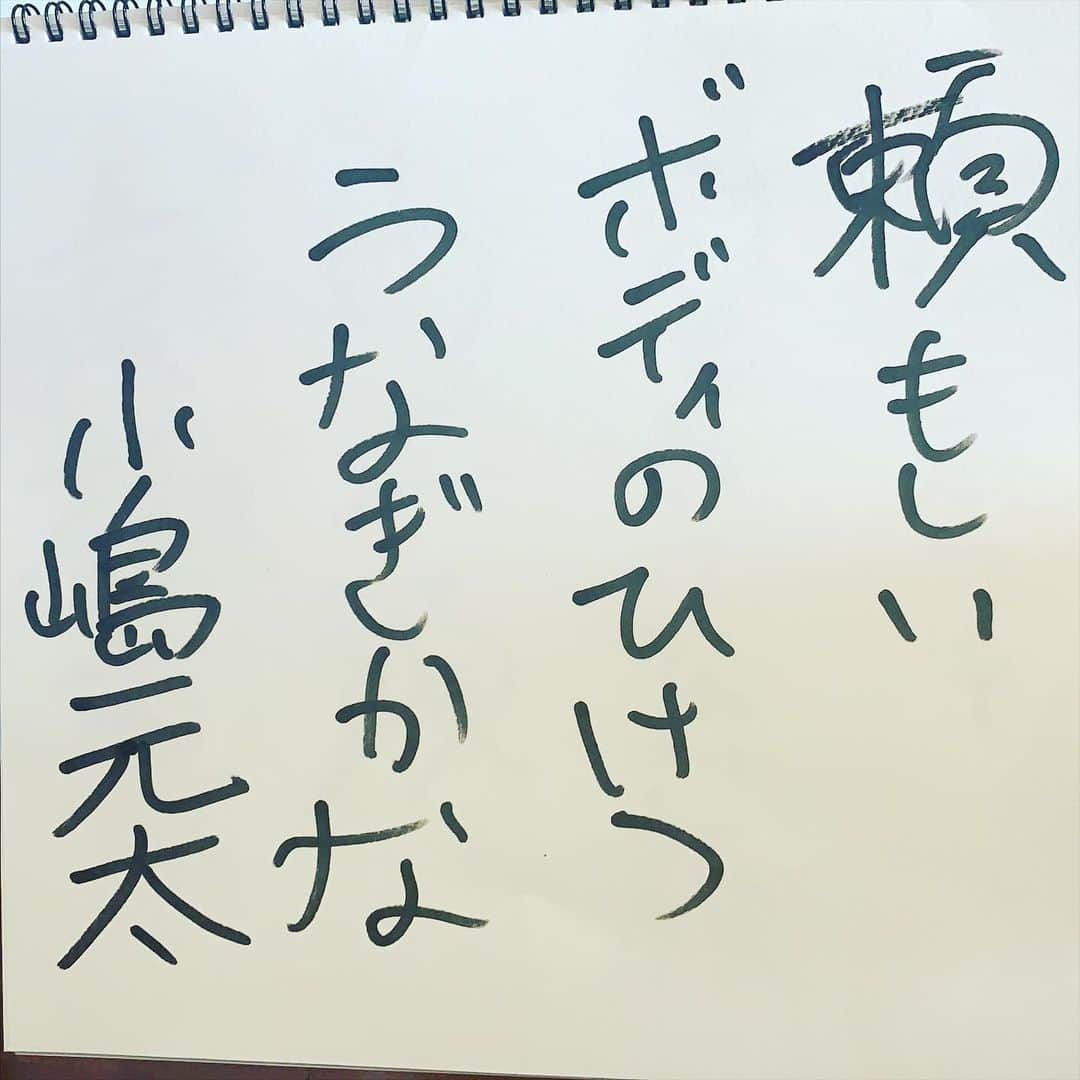 頼もしい
ボディのひけつ
うなぎかな
小嶋元太